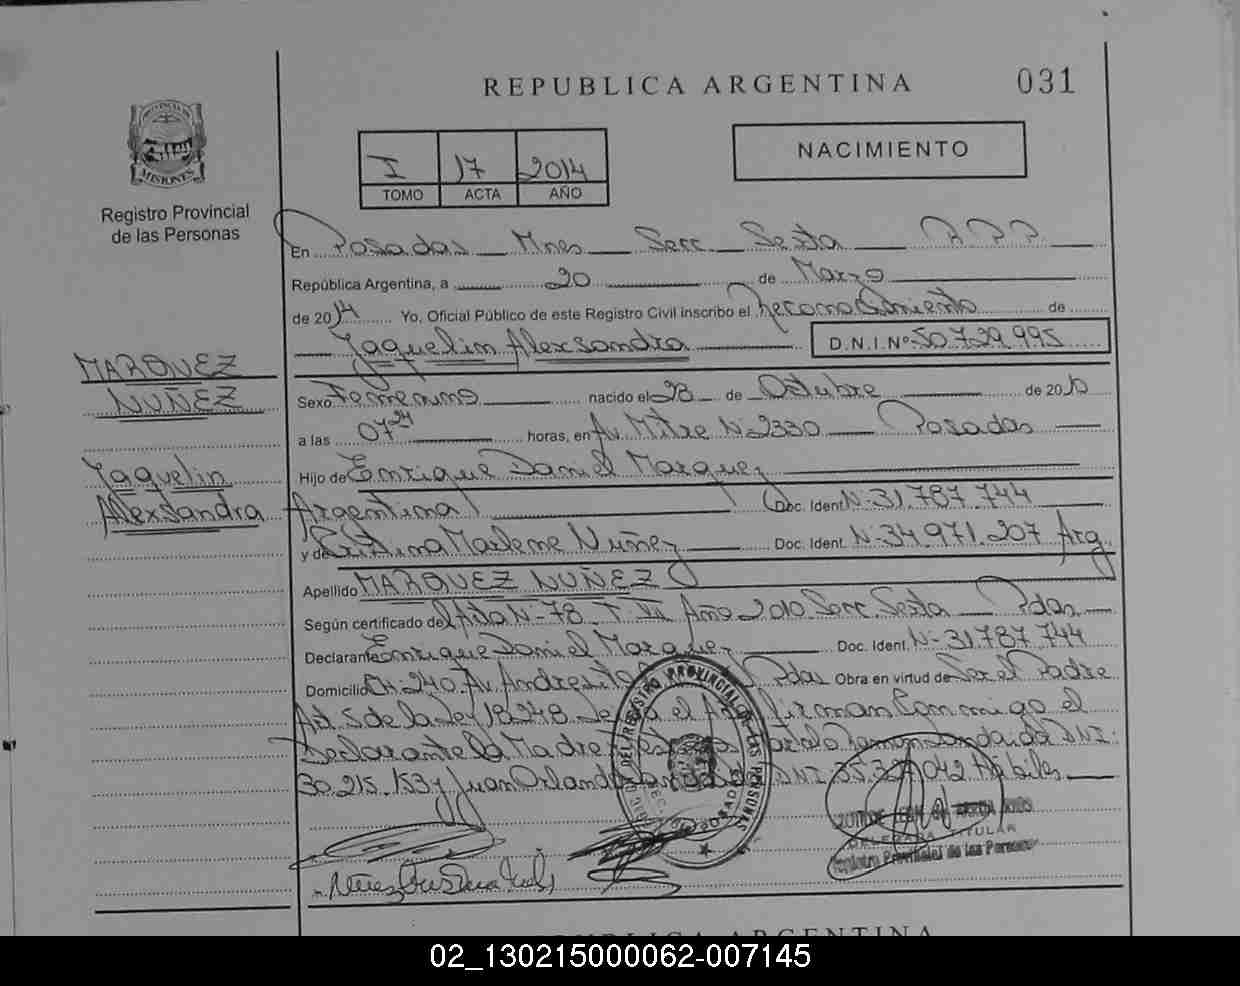 REPUBLICA ARGENTINA 031
PROVINCIA DE
MISIONES
Registro Provincial
de las Personas
I 17 2014
TOMO ACTA AÑO
NACIMIENTO
En Posadas Mnes Secc. Sexta R.P.P.
República Argentina, a 20 de Marzo
de 2014 Yo, Oficial Público de este Registro Civil inscribo el Reconocimiento de
Jaquelin Alexsandra D.N.I.Nº 50.729.995
MARQUEZ
NUÑEZ
Jaquelin
Alexsandra
Sexo Femenino nacido el 28 de Octubre de 2010
a las 07 24 horas, en Av. Mitre Nº 2330 Posadas
Hijo de Enrique Daniel Marquez
Argentina Doc. Ident. Nº 31.787.744
y de Cristina Marlene Nuñez Doc. Ident. Nº 34.971.207 Arg.
Apellido MARQUEZ NUÑEZ
Según certificado del Acta Nº 78 T Año 2010 Secc. Sexta Pdas
Declarante Enrique Daniel Marquez Doc. Ident. Nº 31.787.744
Domicilio CH: 240 Av. Andresito Pdas Obra en virtud de Ser el Padre
Art. 5 de la Ley 18.248. el Firman Conmigo el
Declarante la Madre DNI:
30.215.153 y Juan Orlando DNI 35.327.042 Hábiles
DEL REGISTRO PROVINCIAL DE LAS PERSONAS
POSADAS
DELEGADA TITULAR
Registro Provincial de las Personas
REPUBLICA ARGENTINA
02_130215000062-007145